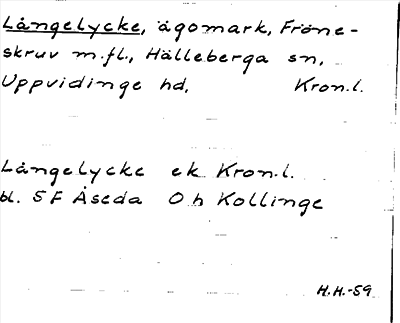 Långelycke, ägomark, Fröne-
skruv m.fl., Hälleberga sn,
Uppvidinge hd, Kron.l.
Långelycke ek Kron.l.
bl. 5F Åseda O h Kollinge
H.H.-59